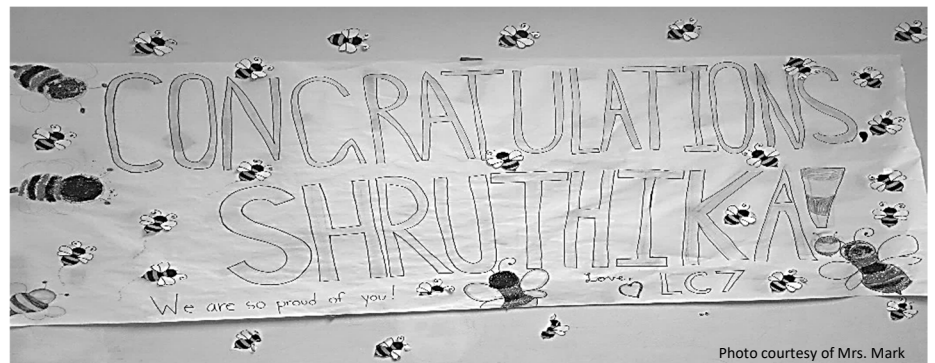 CONGRATULATIONS,
SHRUTHIKA!
We are so proud of you!
Love, LC7
Photo courtesy of Mrs. Mark